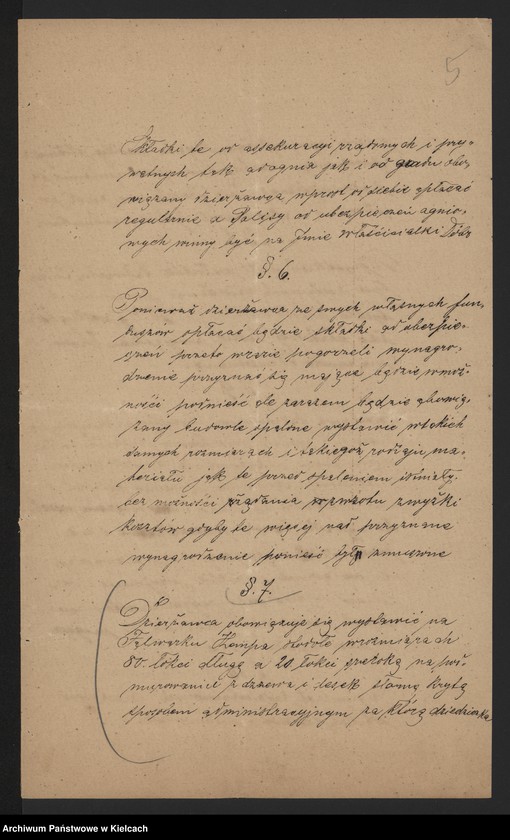 5
Składki te od assekuracyi rządowych i pry-
watnych tak od ognia jak i od gradu obo-
wiązany dzierżawca wprost od siebie opłacać
regularnie a Polisy od ubezpieczeń ognio-
wych winny być na Imie Właścicielki Dóbr
§. 6.
Ponieważ dzierżawca ze swych własnych fun-
duszów opłacać będzie składki od ubezpie-
czeń przeto wrazie pogorzeli wynagro-
dzenie przyznać się mające będzie w moż-
ności podnieść ale zarazem będzie obowią-
zany budowle spalone wystawić w takich
samych rozmiarach i takiegoż rodzaju ma-
teriału jak te przed spaleniem istniały
bez możności rządania zwrotu zwyżki
kosztów gdyby te więcej nad przyznane
wynagrodzenie ponieść był zmuszone
§. 7.
Dzierżawca obowiązuje się wystawić na
Folwarku Kempa stodołę w rozmiarach
80. łokci długą a 20 łokci szeroką na pod-
murowaniu z drzewa i desek słomą krytą
sposobem administracyjnym za którą dziedziczka
Archiwum Państwowe w Kielcach